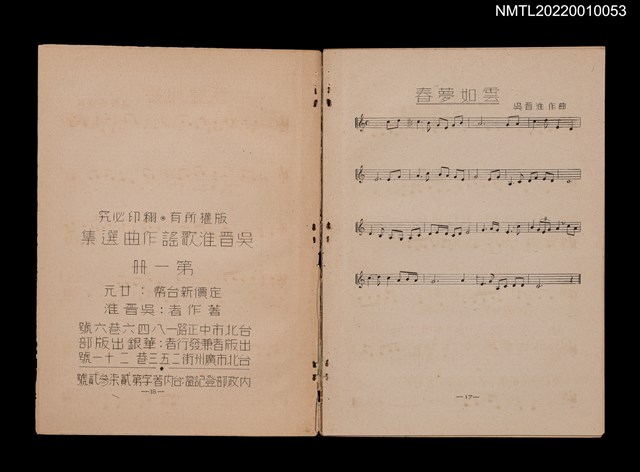 NMTL20220010053
版權所有*翻印必究
吳晋淮歌謠作曲選集
第一冊
定價新台幣：廿元
著作者：吳晋淮
台北市中正路一八四六巷六號
出版者兼發行者：華銀出版部
台北市廣州街二五三巷二十一號
內政部登記證台內著字第貳柒參貳號
—16—
春夢如雲
吳晋淮作曲
—17—